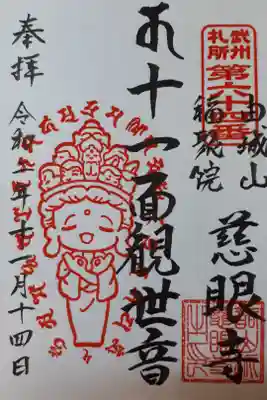 武州
札所
第六十四番
由城山
福聚院
慈眼寺
十一面観世音
奉拝
令和年十一月十四日